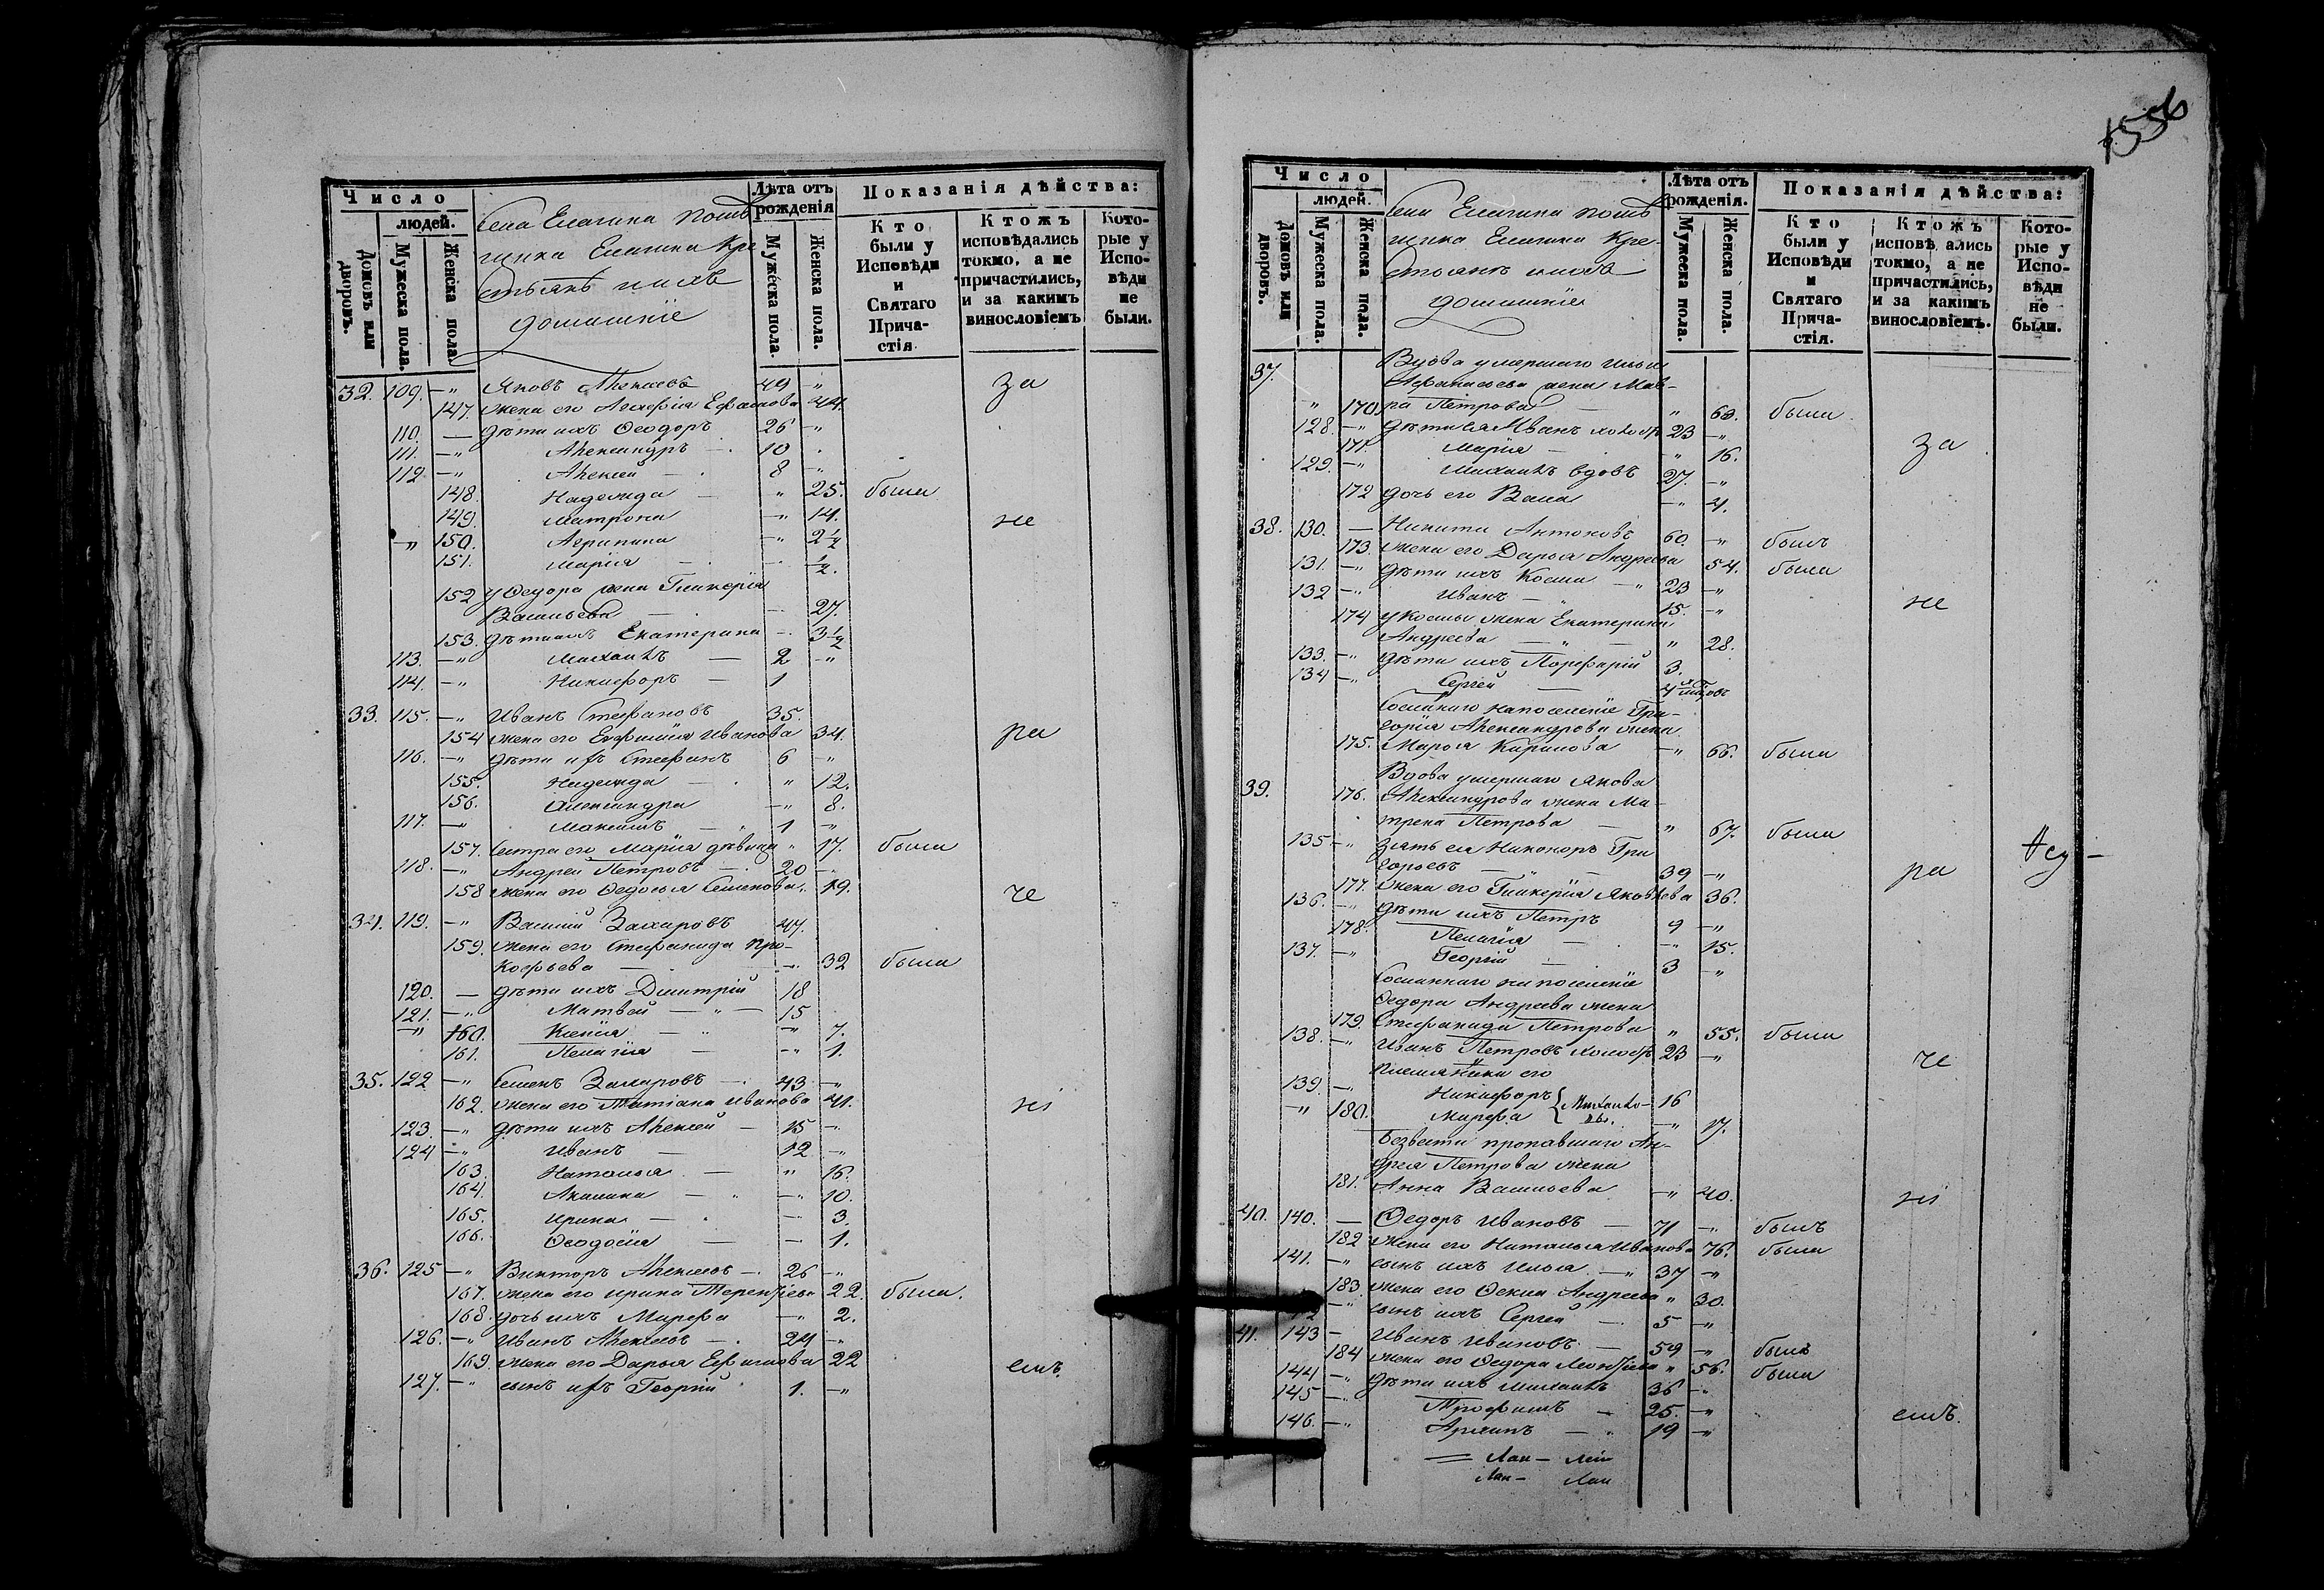 1556
Число
людей.
Домовъ или дворовъ.
Мужеска пола.
Женска пола.
села Елагина помѣ
щика Елагина кре
стьянѣ и ихъ
домашніе
Лѣта отъ рожденія
Мужеска пола.
Женска пола.
Показанія дѣйства:
Кто были у Исповѣди и Святаго Причастія
Ктожъ исповѣдались токмо, а не причастились, и за какимъ винословіемъ
Которые у Исповѣди не были.
32. 109. —" Яковъ Алексѣевъ 49 " за
147. жена его Агафія Ефимова 44.
110. — дѣти ихъ Ѳеодоръ 26 —"
111. —" Александръ — 10
112. —" Алексей — 8 —"
148. Надежда — " 25. была
149. Матрона —" 14. не
—" 150. Агрипина —" 2½
151. Марія — ½.
152 у Ѳедора жена Гликерія
Васильева — 27.
153. дѣти ихъ Екатерина — 3½
113. —" Михаилъ — 2 —"
114. —" Никифоръ — 1
33. 115. —" Иванъ Стефановъ 35.
154 жена его Евфимія Иванова 34. ра
116. —" дѣти ихъ Стефанъ 6 —"
155. Надежда — " 12.
156. Александра —" 8.
117. —" Максимъ — 1 —"
157. Сестра его Марія дѣвица " 17. была
118. —" Андрей Петровъ — 20 —
158 жена его Ѳедосья Семенова. 19. че
34. 119. —" Василій Захаровъ 47.
159. жена его Стефанида Про-
кофьева — 32 была
120. — дѣти ихъ Дмитрій 18
121. —" Матвей — " — 15
—" 160. Ксенія — —" 7.
161. Пелагія — —" 1.
35. 122 —" Семенъ Захаровъ — 43 —"
162. жена его Татіана Иванова 41. ні
123. —" дѣти ихъ Алексей — 15 —
124 —" Иванъ — 12 —"
163. Наталья — " 16.
164. Акилина — —" 10.
165. Ирина — — 3.
166. Ѳеодосія — — 1.
36. 125 —" Викторъ Алексѣевъ — 26 —"
167. жена его Ирина Терентіева 22. была.
168. дочь ихъ Марфа —" 2.
126. —" Иванъ Алексѣевъ — 24 —"
169. жена его Дарья Ефимова 22 емъ.
127. —" сынъ ихъ Георгій 1. —"
Число
людей.
Домовъ или дворовъ.
Мужеска пола.
Женска пола.
села Елагина помѣ
щика Елагина кре-
стьянъ и ихъ
домашніе
Лѣта отъ рожденія.
Мужеска пола.
Женска пола.
Показанія дѣйства:
Кто были у Исповѣди и Святаго Причастія.
Ктожъ исповѣ ались токмо, а не причастились, и за какимъ винословіемъ.
Которые у Исповѣди не были.
37. Вдова умершаго Ильи
Афанасьева жена Мав-
" 170 ра Петрова — " 60. была
128. —" дѣти ея Иванъ холос 23 —"
171. Марія — " 16. за
129. —" Михаилъ вдовъ 27. —"
172 дочь его Васса —" 4.
38. 130. — Никита Антоновъ 60. —" былъ
173. жена его Дарья Андреева 54. была
131. —" дѣти ихъ Косма —" 23 —"
132 —" Иванъ — 15. —" не
174 у Космы жена Екатерина
Андреева — " — " 28.
133. —" дѣти ихъ Порфирій 3.
134 —" Сергей — 4
Сосланаго на поселеніе Гри-
горія Александрова жена
175. Марья Карпова —" 66. была
39. Вдова умершаго Якова
176. Александрова жена Ма-
трена Петрова — " 67. была
135 —" зять ея Никоноръ Гри
горьевъ — — 39 —" ра
177. жена его Гликерія Яковлева 36.
136. —" дѣти ихъ Петръ 9 —"
178. Пелагія — —" 15.
137. —" Георгій — 3 —"
Сосланнаго на поселеніе
Ѳедора Андреева жена
179. Стефанида Петрова " 55. была
138. —" Иванъ Петровъ холос 23 —" че
Племянники его
139. —" Никифоръ { Михайло- 16
—" 180. Марфа вы. —" 17.
Безвести пропавшаго Ан-
дрея Петрова жена
181. Анна Васильева —" 40. ні
40. 140. — Ѳедоръ Ивановъ — 71 —" былъ
182 жена его Наталья Иванова 76. была
141. —" сынъ ихъ Илья —" 37 —"
183. жена его Ѳекла Андреева " 30.
—" сынъ ихъ Сергей — 5 —"
41. 143 — Иванъ Ивановъ — 59 —" былъ
184 жена его Ѳедора Леонтіева " 56. была
144 —" дѣти ихъ Михаилъ 36 —"
145 —" Трофимъ — 25. —"
146. —" Архипъ — 19 —" емъ.